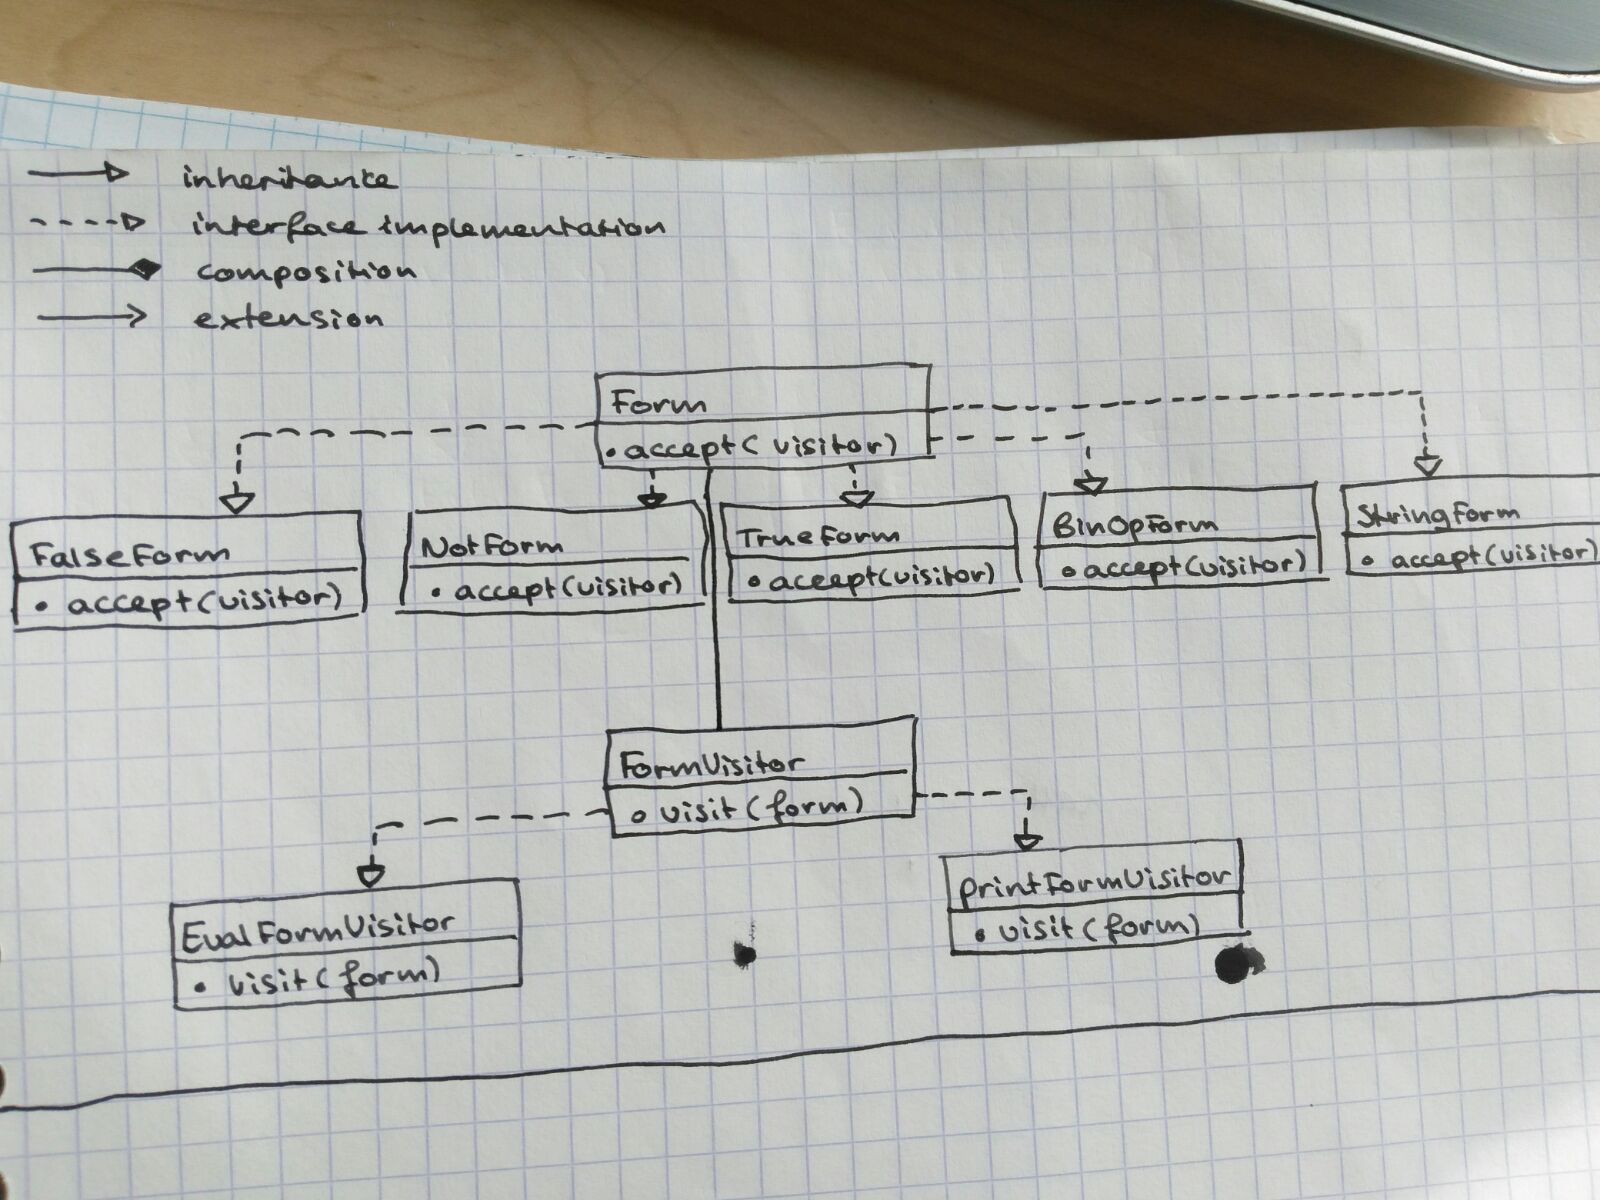 inheritance
interface implementation
composition
extension
Form
• accept(visitor)
FalseForm
• accept(visitor)
NotForm
• accept(visitor)
TrueForm
• accept(visitor)
BinOpForm
• accept(visitor)
StringForm
• accept(visitor)
FormVisitor
• visit(form)
EvalFormVisitor
• visit(form)
printFormVisitor
• visit(form)